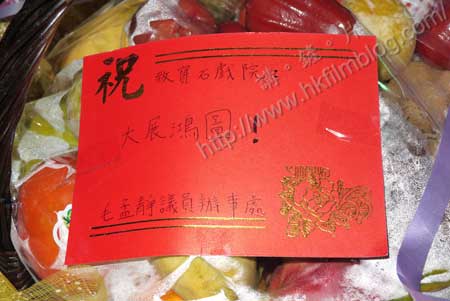 祝
敬賀寶石戲院：
大展鴻圖！
毛孟靜議員辦事處
http://www.hkfilmblog.com/